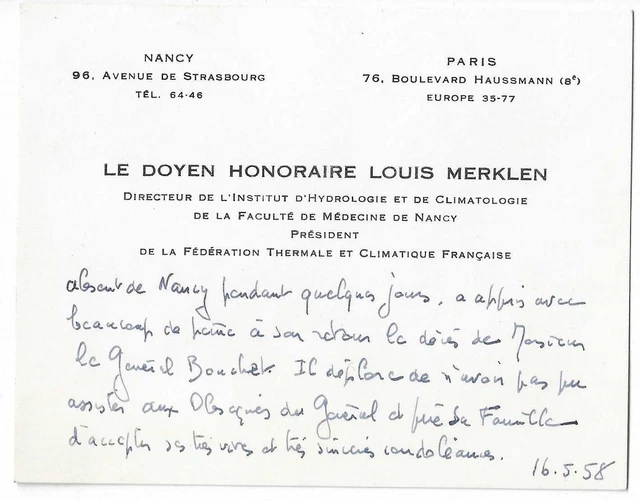 NANCY
96, AVENUE DE STRASBOURG
TÉL. 64-46
PARIS
76, BOULEVARD HAUSSMANN (8ᵉ)
EUROPE 35-77
LE DOYEN HONORAIRE LOUIS MERKLEN
DIRECTEUR DE L'INSTITUT D'HYDROLOGIE ET DE CLIMATOLOGIE
DE LA FACULTÉ DE MÉDECINE DE NANCY
PRÉSIDENT
DE LA FÉDÉRATION THERMALE ET CLIMATIQUE FRANÇAISE
absent de Nancy pendant quelques jours, a appris avec
beaucoup de peine à son retour le décès de Monsieur
le Général Bouchet. Il déplore de n'avoir pas pu
assister aux Obsèques du Général et prie sa Famille
d'accepter ses très vives et très sincères condoléances.
16.5.58